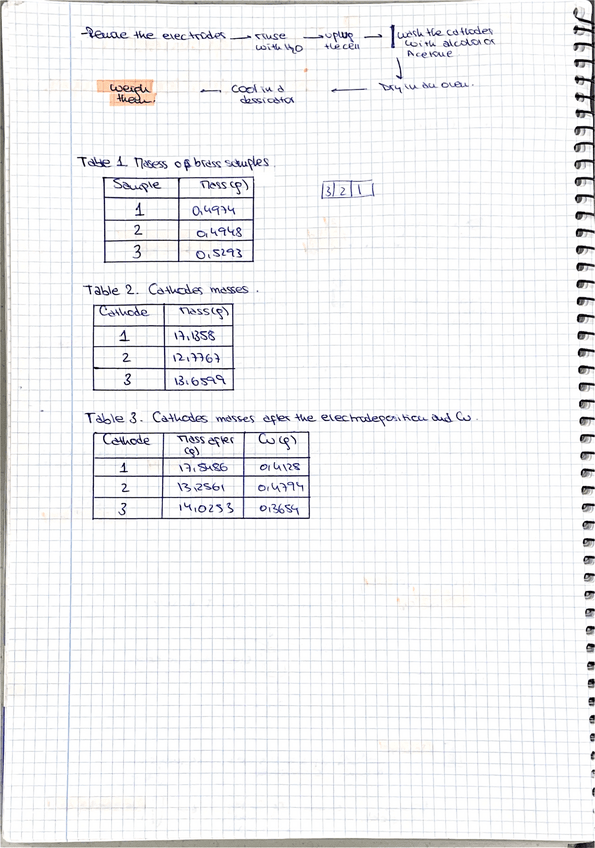 -Remove the electrodes → rinse with H₂O → unplug the cell → wash the cathodes with alcohol or Acetone
↓
Dry in an oven. ← Cool in a dessicator ← Weigh them.
Table 1. Masses of brass samples.
Sample Mass(g)
1 0,4974
2 0,4948
3 0,5293
3 2 1
Table 2. Cathodes masses.
Cathode Mass(g)
1 17,1358
2 12,7767
3 13,6599
Table 3. Cathodes masses after the electrodeposition and Cu.
Cathode Mass after (g) Cu (g)
1 17,5486 0,4128
2 13,2561 0,4794
3 14,0253 0,3654